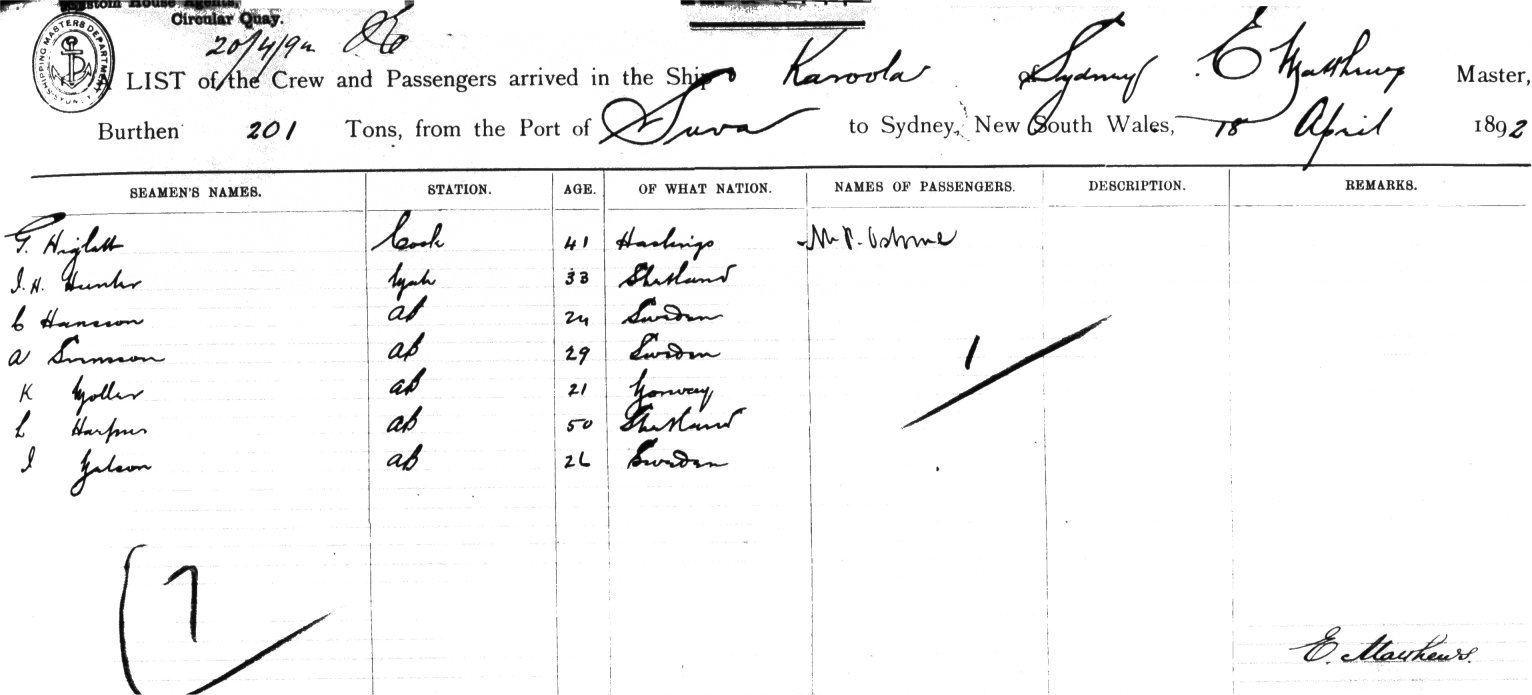 Custom House Agents,
Circular Quay.
20/4/92
SHIPPING MASTERS DEPARTMENT SYDNEY
A LIST of the Crew and Passengers arrived in the Ship Karoola of Sydney E Matthews Master,
Burthen 201 Tons, from the Port of Suva to Sydney, New South Wales, 18 April 1892
SEAMEN'S NAMES. STATION. AGE. OF WHAT NATION. NAMES OF PASSENGERS. DESCRIPTION. REMARKS.
G. Higlett Cook 41 Hastings Mr P. Osborne
J. H. Hunter 33 Shetland
C Hansson AB 24 Sweden
A AB 29 Sweden
K Moller AB 21 Norway
L AB 50 Shetland
J Nelson AB 26 Sweden
1
7
E. Mathews.